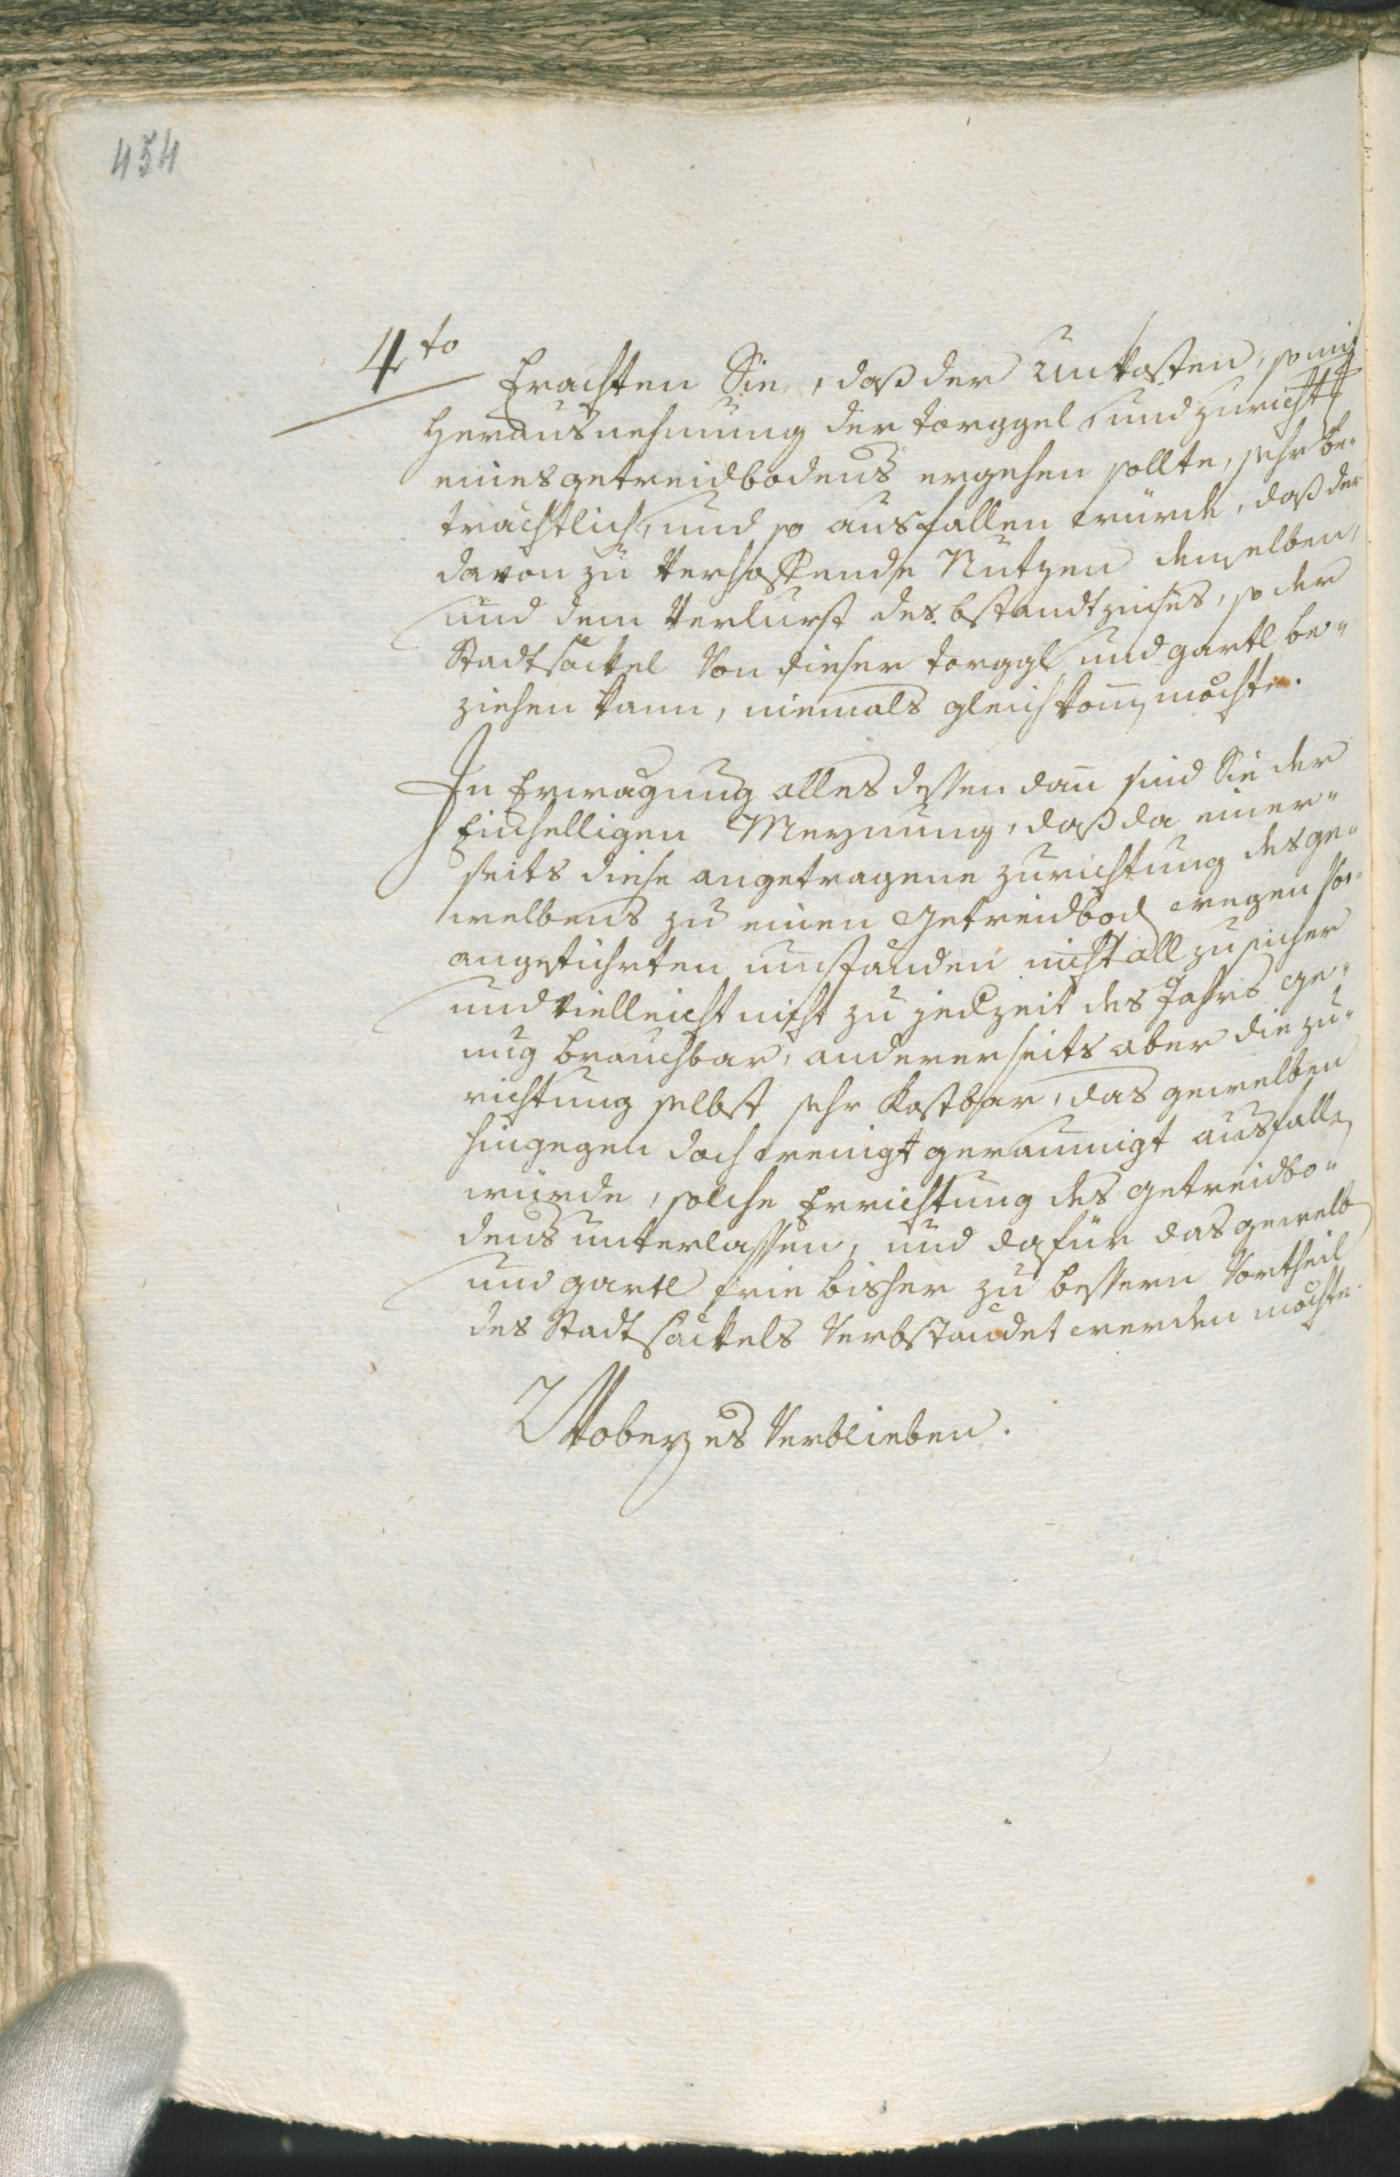 454
4to
Erachten Sie, daß der Unkosten, so mit
Herausnehmung der torggel und zuricht
eines getreidbodens ergehen sollte, sehr be-
trachtlich, und so ausfallen würde, daß der
davon zu verhoffende Nutzen demselben,
und dem Verlurst des bstandtzinses, so der
Stadtsäckel von dieser torggl und gartl be-
ziehen kann, niemals gleichkom̄en möchte.
In Erwägung alles dessen dan̄ sind Sie der
Einhelligen Meynung, daß da einer-
seits diese angetragene zurichtung des ge-
welbens zu einen Getreidboden wegen vor-
angeführten umständen nicht allzu sicher
und vielleicht nicht zu jed zeit des Jahrs ge-
nug brauchbar, andererseits aber die zu-
richtung selbst sehr kostbar, das gewelben
hingegen doch wenigt geraumigt ausfallen
würde, solche Errichtung des getreidbo-
dens unterlassen, und dafür das gewelb
und gartl wie bisher zu bessern Vortheil
des Stadtsäckels verbstandet werden möchte.
Wobey es verblieben.